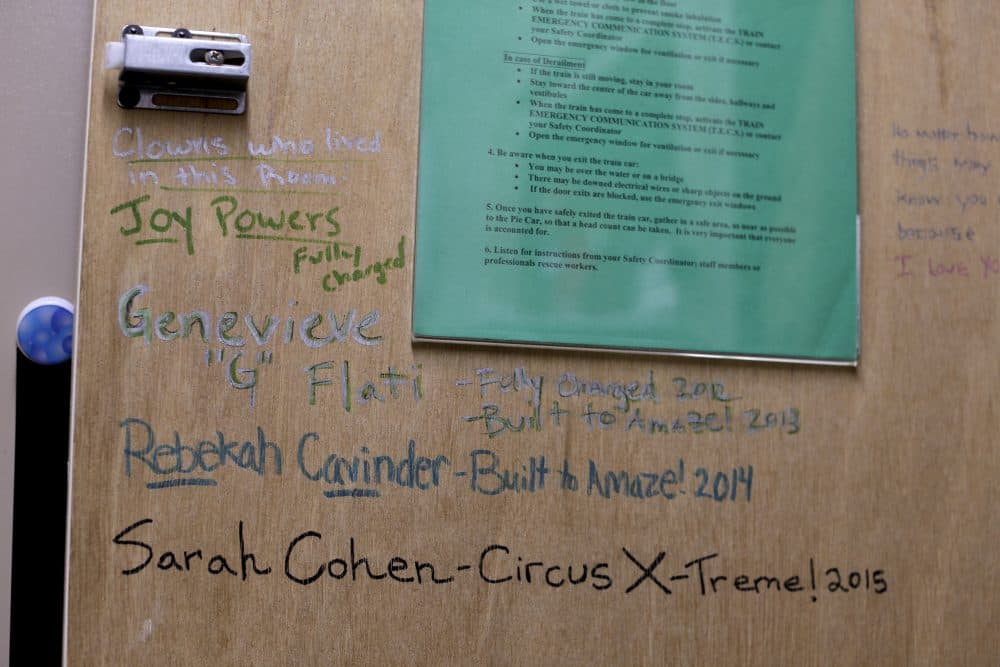 Use a wet towel or cloth to prevent smoke inhalation
• When the train has come to a complete stop, activate the TRAIN
EMERGENCY COMMUNICATION SYSTEM (T.E.C.S.) or contact
your Safety Coordinator
• Open the emergency window for ventilation or exit if necessary
In case of Derailment
• If the train is still moving, stay in your room
• Stay toward the center of the car away from the sides, hallways and
vestibules
• When the train has come to a complete stop, activate the TRAIN
EMERGENCY COMMUNICATION SYSTEM (T.E.C.S.) or contact
your Safety Coordinator
• Open the emergency window for ventilation or exit if necessary
4. Be aware when you exit the train car:
• You may be over the water or on a bridge
• There may be downed electrical wires or sharp objects on the ground
• If the door exits are blocked, use the emergency exit windows
5. Once you have safely exited the train car, gather in a safe area, as near as possible
to the Pie Car, so that a head count can be taken. It is very important that everyone
is accounted for.
6. Listen for instructions from your Safety Coordinator; staff members or
professionals rescue workers.
Clowns who lived
in this Room
Joy Powers
Fully
charged
Genevieve
"G" Flati
-Fully Charged 2012
-Built to Amaze! 2013
Rebekah Cavinder-Built to Amaze! 2014
Sarah Cohen-Circus X-Treme! 2015
No matter how
things may
know you
because
I love